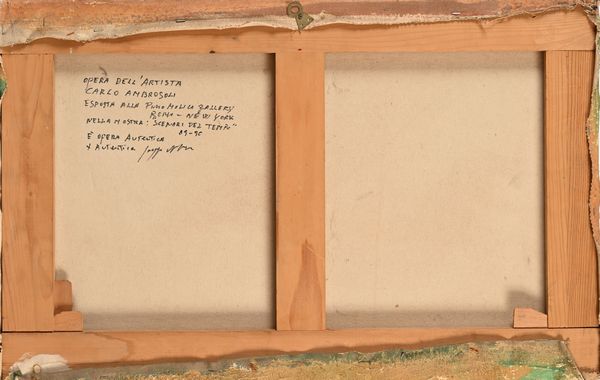 OPERA DELL'ARTISTA
CARLO AMBROSOLI
ESPOSTA ALLA GALLERY
ROMA - NEW YORK
NELLA MOSTRA: "SCENARI DEL TEMPO"
89-90
È OPERA AUTENTICA
X AUTENTICA